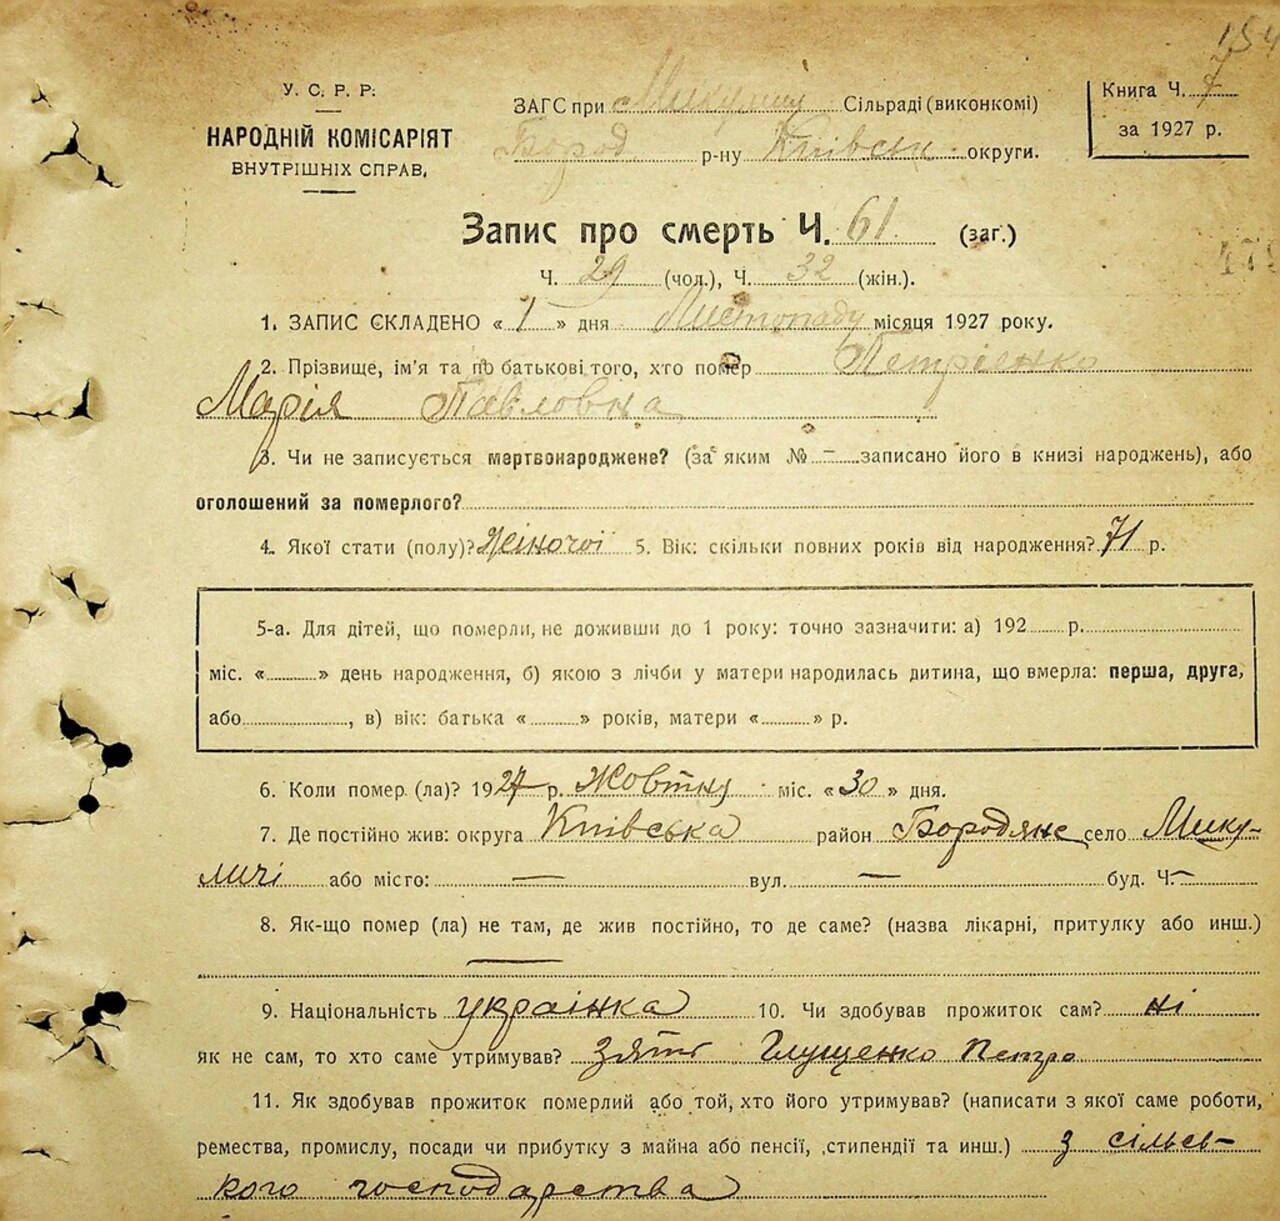 154
У. С. Р. Р.
НАРОДНІЙ КОМІСАРІЯТ
ВНУТРІШНІХ СПРАВ.
ЗАГС при Микулицкій Сільраді (виконкомі)
Бород. р-ну Київськ. округи.
Книга Ч. 7
за 1927 р.
Запис про смерть Ч. 61 (заг.)
Ч. 29 (чол.), Ч. 32 (жін.).
1. ЗАПИС СКЛАДЕНО « 1 » дня Листопаду місяця 1927 року.
2. Прізвище, ім'я та по батькові того, хто помер Петрієнко
Марія Павловна
3. Чи не записується мертвонароджене? (за яким № – записано його в книзі народжень), або
оголошений за померлого?
4. Якої стати (полу)? Жіночоі 5. Вік: скільки повних років від народження? 71 р.
5-а. Для дітей, що померли, не доживши до 1 року: точно зазначити: а) 192 р.
міс. « » день народження, б) якою з лічби у матери народилась дитина, що вмерла: перша, друга,
або , в) вік: батька « » років, матери « » р.
6. Коли помер (ла)? 1927 р. Жовтня міс. « 30 » дня.
7. Де постійно жив: округа Київська район Бородянс село Мику-
личі або місто: — вул. — буд. Ч. –
8. Як-що помер (ла) не там, де жив постійно, то де саме? (назва лікарні, притулку або инш.)
—
9. Національність украінка 10. Чи здобував прожиток сам? ні
як не сам, то хто саме утримував? зять Глущенко Петро
11. Як здобував прожиток померлий або той, хто його утримував? (написати з якої саме роботи,
ремества, промислу, посади чи прибутку з майна або пенсії, стипендії та инш.) з сільсь-
кого господарства